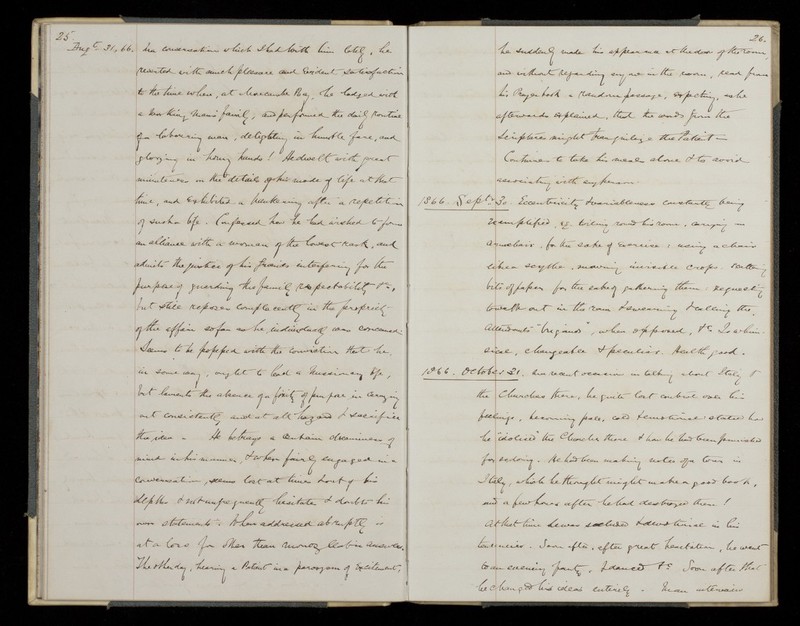 25
Aug st 31, 66. In a conversation which I had with him lately, he
reverted with much pleasure and evident satisfaction
to the time when, at Morecambe Bay, he lodged with
a working man's family, and performed the daily routine
of a labouring man, delighting in humble fare, and
glorying in horny hands! He dwelt with great
minuteness on the details of his mode of life at that
time, and exhibited a hankering after a repetition
of such a life. Confessed how he had wished to form
an alliance with a woman of the lowest rank, and
admits the justice of his friends interfering for the
purpose of guarding the family respectability &c,
but still reposes complacently in the propriety
of the affair so far as he individually was concerned.
Seems to be possessed with the conviction that he
in some way, ought to lead a Missionary life,
but laments the absence of a fixity of purpose in carrying
out consistently and at all hazard & sacrifice
this idea - He betrays a certain dreaminess of
mind in his manner, & when fairly engaged in a
conversation, seems lost at times out of his
depths & not infrequently hesitates & doubts his
own statements. When addressed abruptly is
at a loss for other than monosyllabic answers.
The other day, hearing a Patient in a paroxysm of excitement,
26.
he suddenly made his appearance at the door of the room,
and without regarding anyone in the room, read from
his Prayer book a random passage, expecting, as he
afterwards explained, that the words from the
Scripture might tranquilize the Patient -
Continues to take his meals alone & to avoid
associating with any person
1866. Septr 30. Eccentricity & variableness constantly being
exemplified, eg. walking round his room, carrying an
armchair, for the sake of exercise: using a chair
like a scythe, mowing invisible crops. Cutting
bits of paper for the sake of gathering them: requesting
to walk out in the rain & swearing & calling the
Attendants "brigands", when opposed, &c Is whim-
sical, changeable & peculiar. Health good.
1866. October 31. On a recent occasion in talking about Italy &
the Churches there, he quite lost control over his
feelings, becoming pale, cold & emotional: stated how
he "idolised" the Churches there & how he had been punished
for so doing. He had been making notes of a tour in
Italy, which he thought might make a good book,
and a few hours after he had destroyed them!
At that time he was secluded & devotional in his
tendencies. Soon after, after great hesitation, he went
to an evening party, & danced &c. Soon after that
he changed his ideas entirely. In an interview